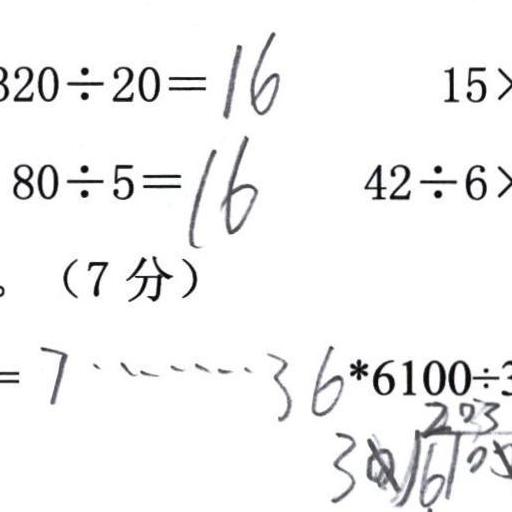 320÷20=16 15×
80÷5=16 42÷6×
。（7 分）
=7……36 *6100÷3
203
30 610